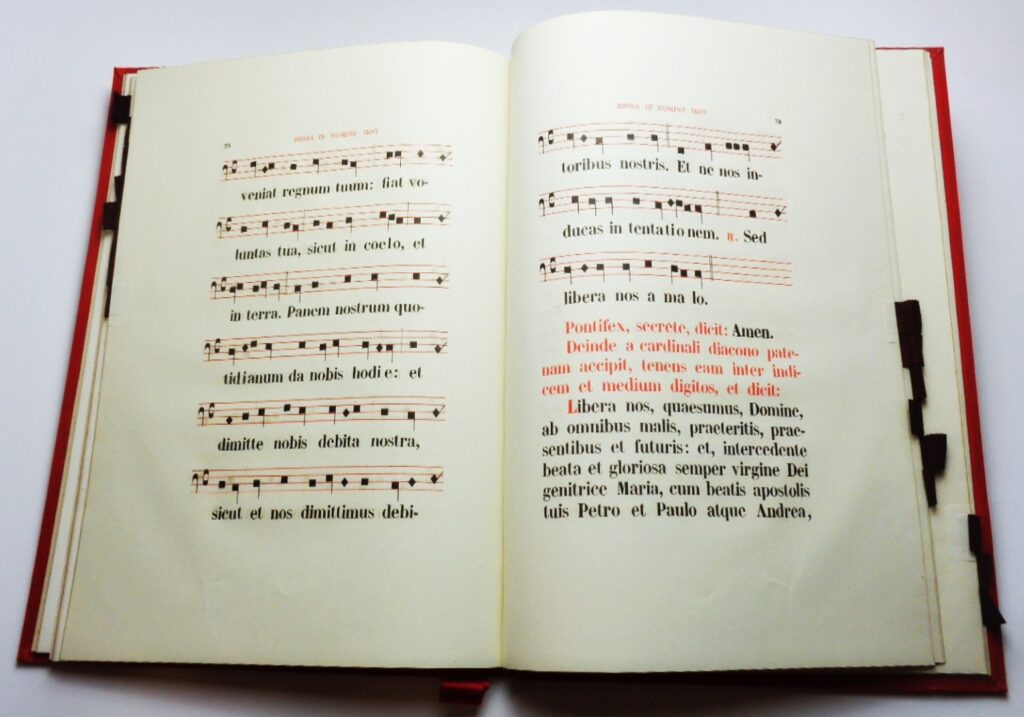 78
MISSA IN NOMINE IESU
veniat regnum tuum: fiat vo-
luntas tua, sicut in coelo, et
in terra. Panem nostrum quo-
tidianum da nobis hodie: et
dimitte nobis debita nostra,
sicut et nos dimittimus debi-
MISSA IN NOMINE IESU
79
toribus nostris. Et ne nos in-
ducas in tentationem. ℟. Sed
libera nos a malo.
Pontifex, secrete, dicit: Amen.
Deinde a cardinali diacono pate-
nam accipit, tenens eam inter indi-
cem et medium digitos, et dicit:
Libera nos, quaesumus, Domine,
ab omnibus malis, praeteritis, prae-
sentibus et futuris: et, intercedente
beata et gloriosa semper virgine Dei
genitrice Maria, cum beatis apostolis
tuis Petro et Paulo atque Andrea,